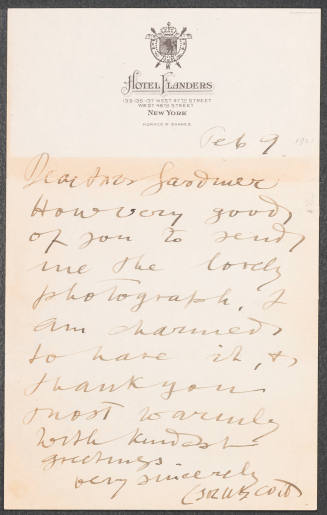 HOTEL FLANDERS
133-135-137 WEST 47TH STREET
WEST 48TH STREET
NEW YORK
Feb 9
Dear Mrs Gardner
How very good
of you to send
me the lovely
photograph. I
am charmed
to have it, &
thank you
most warmly
With kindest
greetings
very sincerely